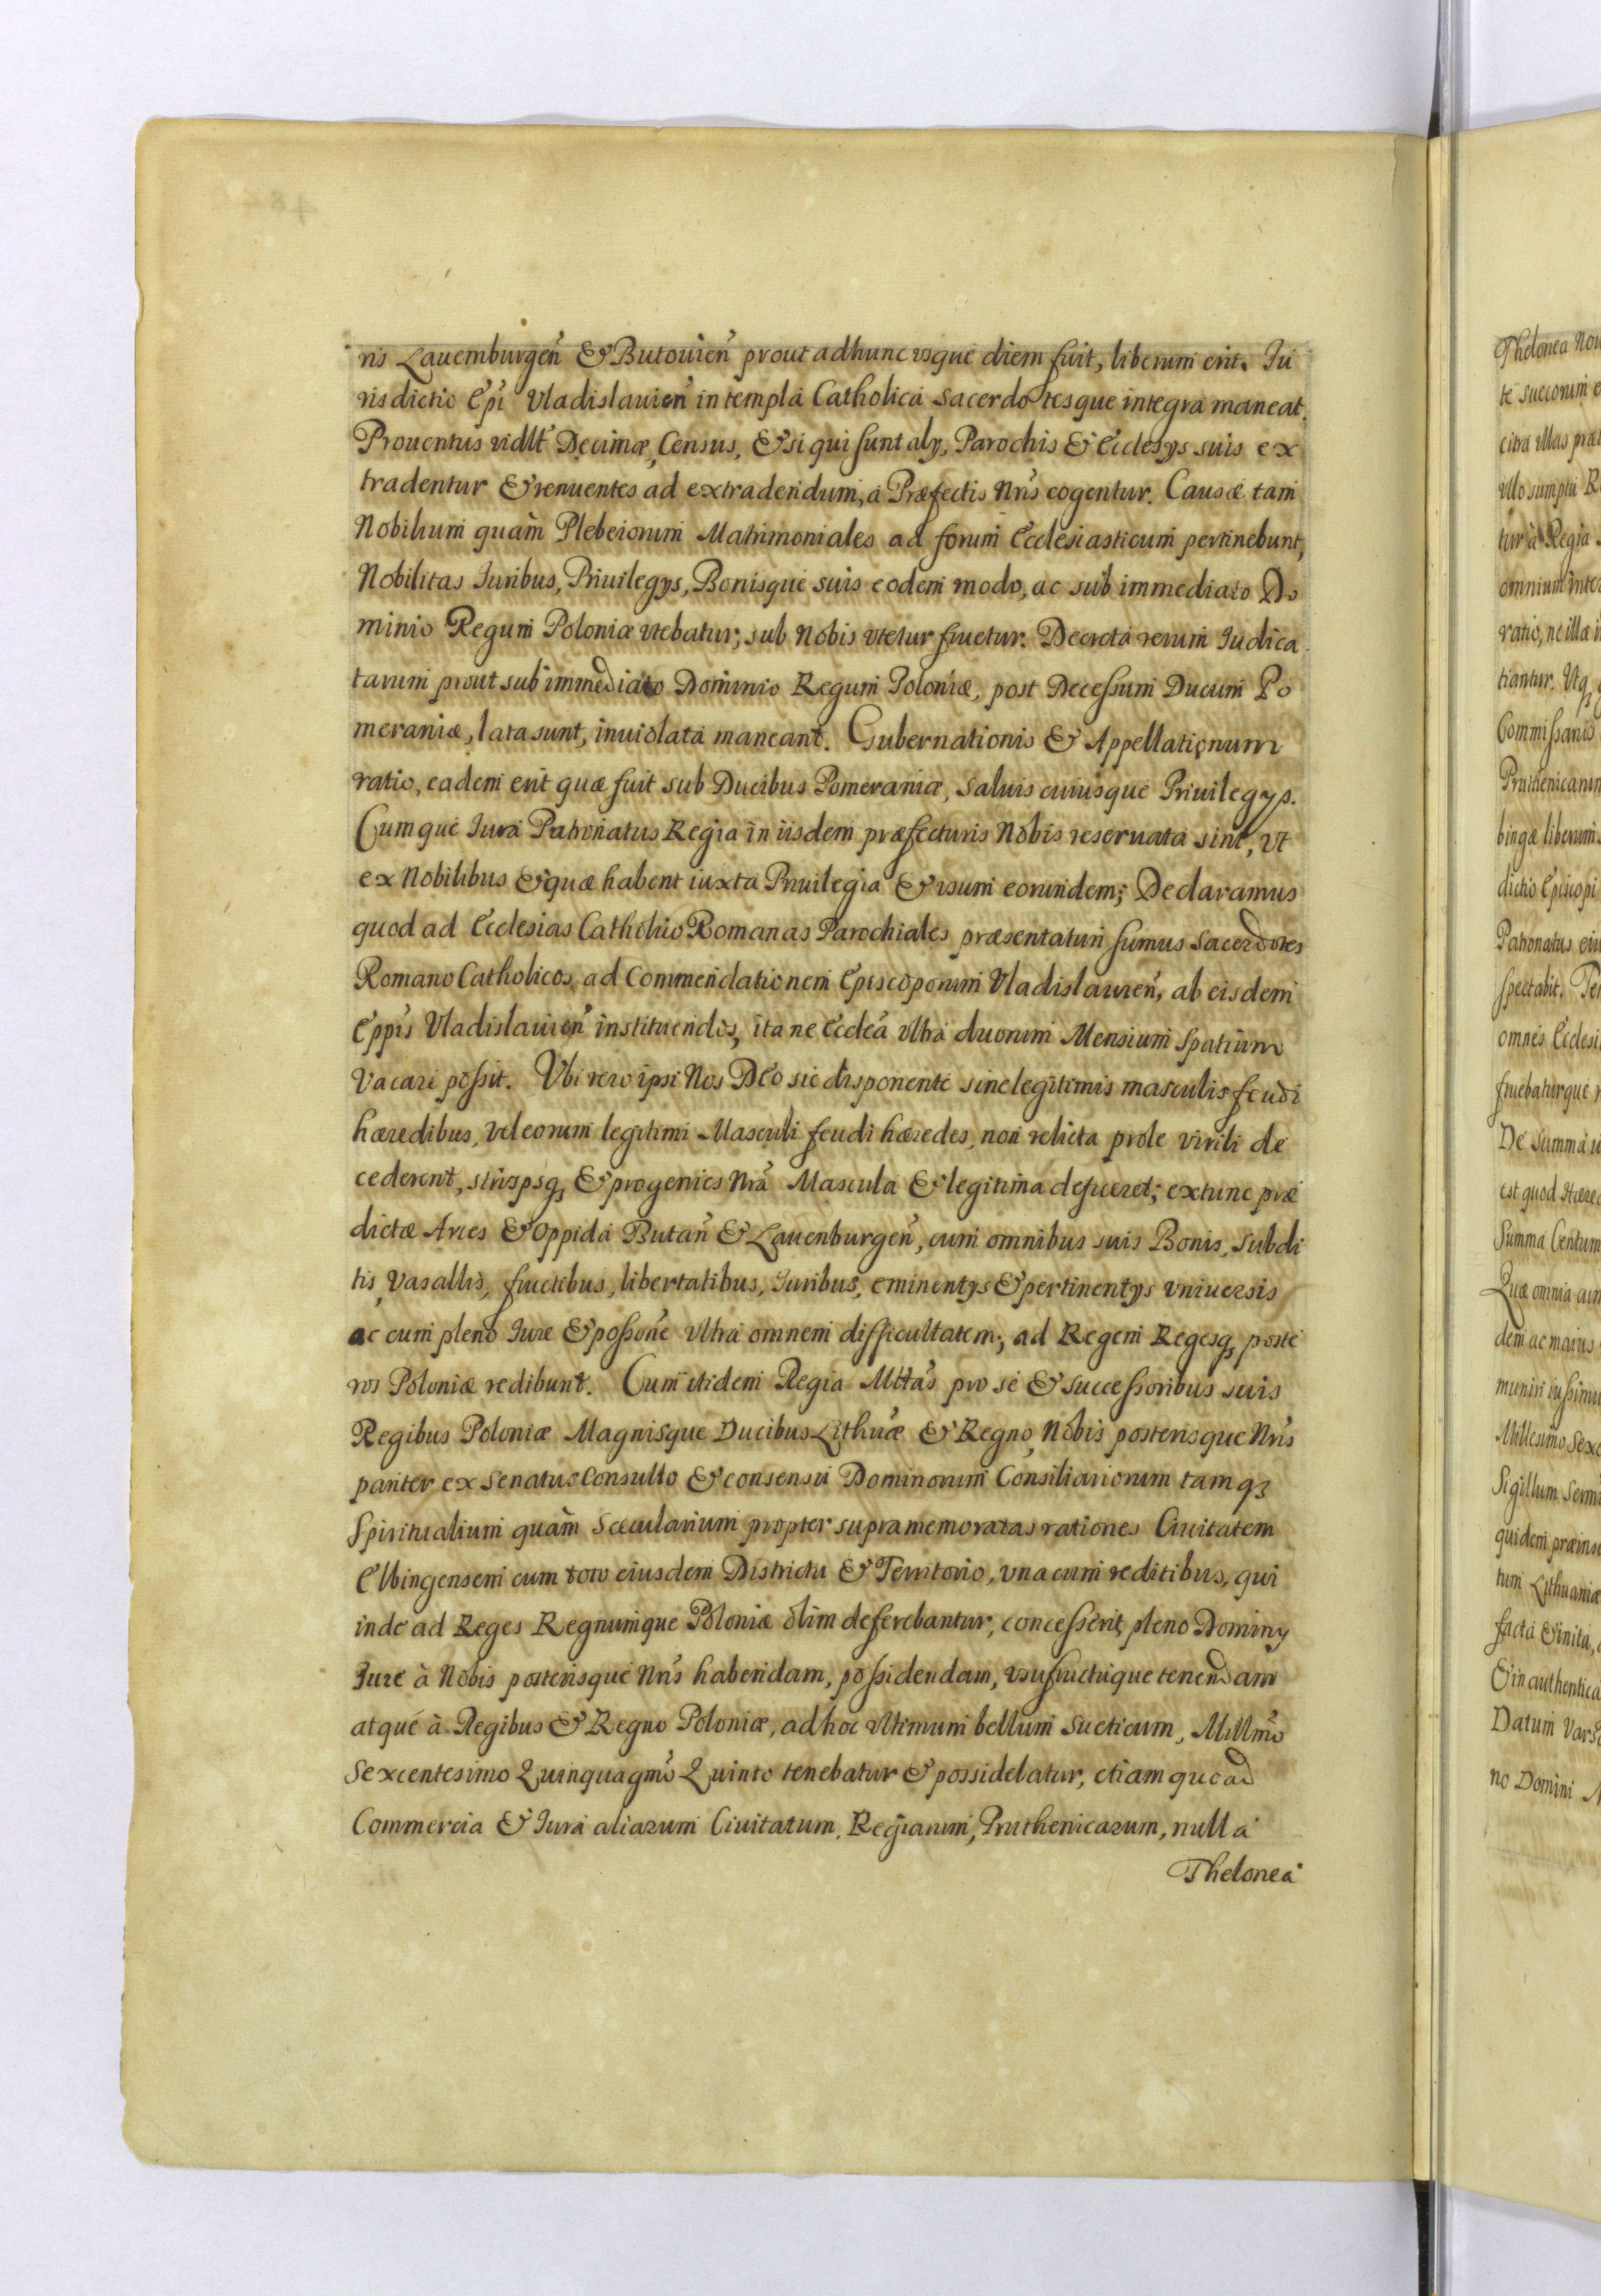 ris Lauemburgeñ & Butouieñ prout adhunc vsque diem fuit, liberum erit. Iu
risdictio Epi Vladislauieñ in templa Catholica Sacerdotesque integra maneat.
Prouentus vidlt Decimæ, Census, & si qui sunt alÿ, Parochis & Ecclesÿs suis ex
tradentur & renuentes ad extradendum, a Præfectis Nris cogentur. Causæ tam
Nobilium quàm Plebeiorum Matrimoniales ad forum Ecclesiasticum pertinebunt,
Nobilitas Iuribus, Priuilegÿs, Bonisque suis eodem modo, ac sub immediato Do
minio Regum Poloniæ vtebatur; sub Nobis vtetur fruetur. Decreta rerum Iudica
tarum prout sub immediato Dominio Regum Poloniæ, post Decessum Ducum Po
meraniæ, lata sunt, inuiolata maneant. Gubernationis & Appellationum
ratio, eadem erit quæ fuit sub Ducibus Pomeraniæ, saluis cuiusque Priuilegÿs.
Cumque Iura Patronatus Regia in iisdem præfecturis Nobis reseruata sint, vt
ex Nobilibus & quæ habent iuxta Priuilegia & vsum eorundem; Declaramus
quod ad Ecclesias Catholico Romanas Parochiales præsentaturi sumus Sacerdotes
Romano Catholicos, ad Commendationem Episcoporum Vladislauieñ, ab eisdem
Eppis Vladislauieñ instituendos, ita ne Ecclea vltra duorum Mensium spatium
vacari possit. Vbi vero ipsi Nos Deo sic disponente sine legitimis masculis feudi
hæredibus, vel eorum legitimi Masculi feudi hæredes, non relicta prole virili de
cederent, stirpsq3 & progenies Nra Mascula & legitima defueret; extunc præ
dictæ Arces & Oppida Butañ & Lauenburgeñ, cum omnibus suis Bonis, subdi
tis, Vasallis, fructibus, libertatibus, Iuribus, eminentÿs & pertinentÿs vniuersis
ac cum pleno Iure & possone vltra omnem difficultatem; ad Regem Regesq3 poste
ros Poloniæ redibunt. Cum itidem Regia Mttas pro se & successoribus suis
Regibus Poloniæ Magnisque Ducibus Lithuæ & Regno, Nobis posterisque Nris
pariter ex Senatus Consulto & consensu Dominorum Consiliariorum tam q3
Spiritualium quàm Sæcularium propter supra memoratas rationes Ciuitatem
Elbingensem cum toto eiusdem Districtu & Territorio, vna cum reditibus, qui
inde ad Reges Regnumque Poloniæ olim deferebantur, concesserit, pleno Dominÿ
Iure à Nobis posterisque Nris habendam, possidendam, vsufructuque tenendam
atque à Regibus & Regno Poloniæ, ad hoc vltimum bellum Sueticum, Millmo
Sexcentesimo Quinquagmo Quinto tenebatur & possidebatur, etiam quoad
Commercia & Iura aliarum Ciuitatum, Regiarum, Pruthenicarum, nulla
Thelonea
Thelonea
te suecorum
citra illas
vllo sumptu
tur à Regia
omnium
ratio, ne illæ
tiantur. Vtq3
Commissarijs
bingæ liberum
dictio Episcopi
Patronatus
spectabit.
omnes
fruebaturque
De summa
est quod
Summa Centum
Quæ omnia
dem ac maius
muniri iussimus
Millesimo
Sigillum
quidem
tum Lithuaniæ
facta & inita,
& in authentica
Datum
no Domini